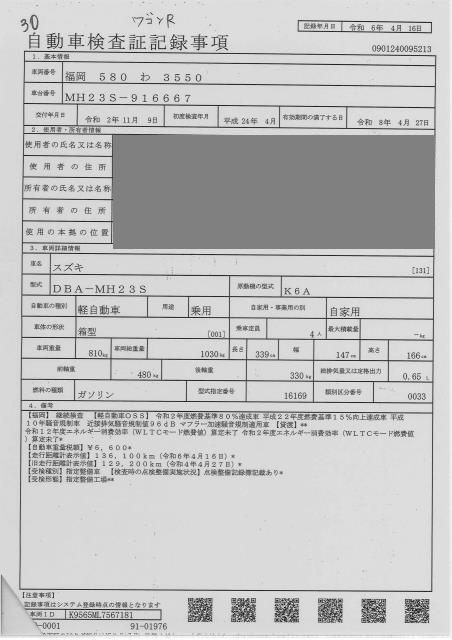 30
ワゴンR
記録年月日 令和 6年 4月 16日
自動車検査証記録事項
0901240095213
1. 基本情報
車両番号 福岡 580 わ 3550
車台番号 MH23S-916667
交付年月日 令和 2年11月 9日 初度検査年月 平成 24年 4月 有効期間の満了する日 令和 8年 4月 27日
2. 使用者・所有者情報
使用者の氏名又は名称
使用者の住所
所有者の氏名又は名称
所有者の住所
使用の本拠の位置
3. 車両詳細情報
車名 スズキ [131]
型式 DBA-MH23S 原動機の型式 K6A
自動車の種別 軽自動車 用途 乗用 自家用・事業用の別 自家用
車体の形状 箱型 [001] 乗車定員 4人 最大積載量 -kg
車両重量 810kg 車両総重量 1030kg 長さ 339cm 幅 147cm 高さ 166cm
前軸重 480kg 後軸重 330kg 総排気量又は定格出力 0.65L
燃料の種類 ガソリン 型式指定番号 16169 類別区分番号 0033
4. 備考
【福岡】 継続検査 【軽自動車OSS】 令和2年度燃費基準80%達成車 平成22年度燃費基準15%向上達成車 平成
10年騒音規制車 近接排気騒音規制値96dB マフラー加速騒音規制適用車 【貸渡】**
令和12年度エネルギー消費効率（WLTCモード燃費値）算定未了 令和2年度エネルギー消費効率（WLTCモード燃費値
）算定未了*
【自動車重量税額】￥6,600*
【走行距離計表示値】136,100km（令和6年4月16日）*
【旧走行距離計表示値】129,200km（令和4年4月27日）*
【受検種別】指定整備車 【検査時の点検整備実施状況】点検整備記録簿記載あり*
【受検形態】指定整備工場**
【注意事項】
記録事項はシステム登録時点の情報となります
車両ID K9565ML7567181
-0001 91-01976